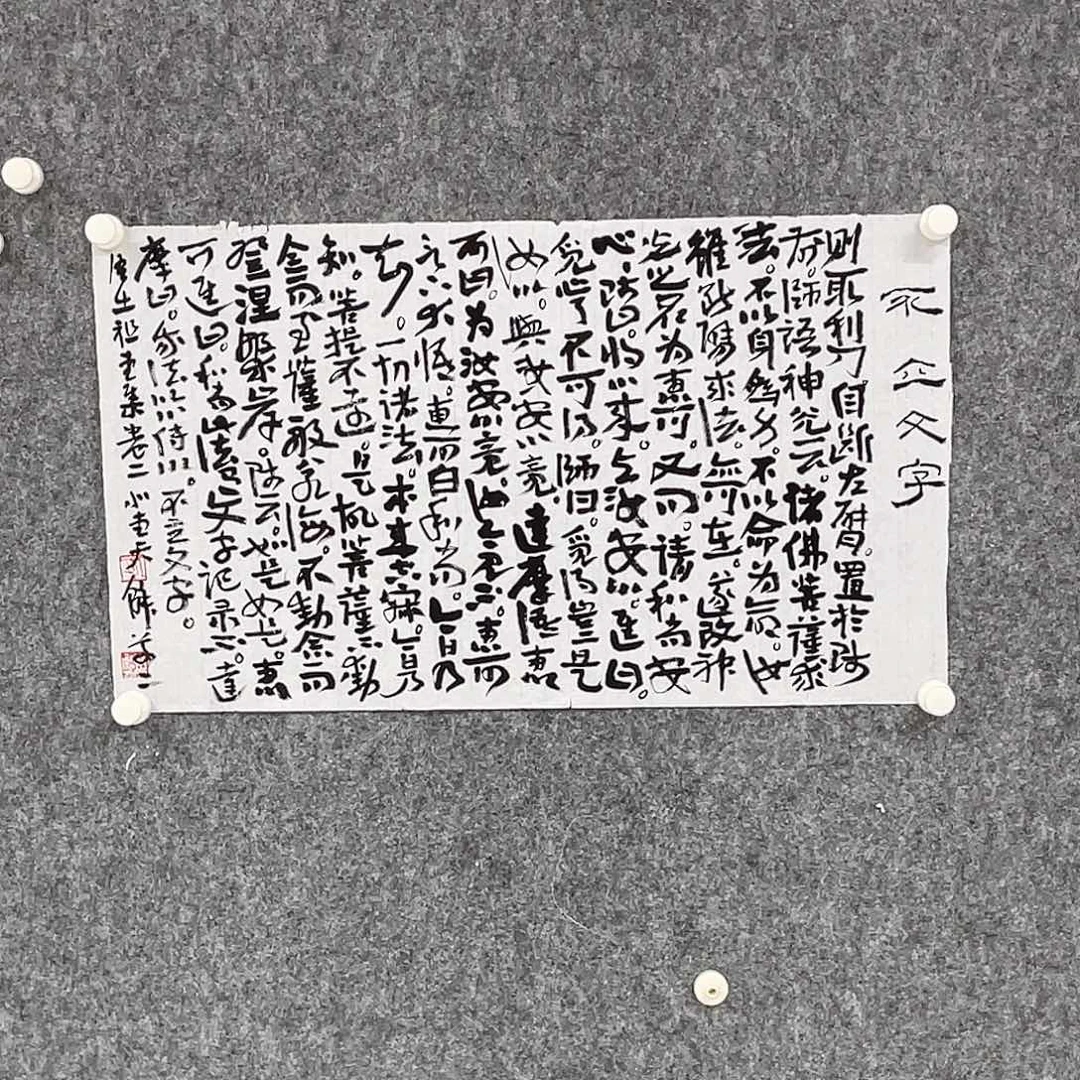 不立文字
則取利刀。自斷左臂。置於師
前。師語神光云。諸佛菩薩求
法。不以身為身。不以命為命。汝
雖斷臂求法。亦可在。遂改神
光名為惠可。又問。請和尚安
心。師曰。將心來。與汝安心。進曰。
覓心了不可得。師曰。覓得豈是
汝心。與汝安心竟。達摩語惠
可曰。為汝安心竟。汝今見不。惠可
言下大悟。惠可白和尚。今日乃
知。一切諸法。本來空寂。今日乃
知。菩提不遠。是故菩薩不動
念而至薩般若海。不動念而
登涅槃岸。師云。如是如是。惠
可進曰。和尚此法有文字記錄不。達
摩曰。我法以心傳心。不立文字。
祖堂集卷二